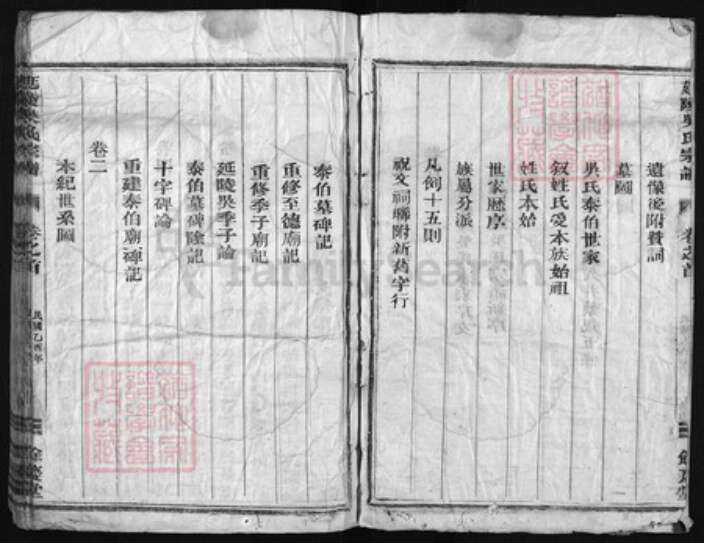 遺像後附贊詞
墓圖
吳氏泰伯世家
叙姓氏爰本族始祖
姓氏本始
世家歴序
族屬分派
凡例十五則
祝文祠聯附新舊字行
泰伯墓碑記
重修至德廟記
重修季子廟記
延陵吳季子論
泰伯墓碑陰記
十字碑論
重建泰伯廟碑記
卷二
本紀世系圖
延陵吳氏宗譜
卷之首
民國乙酉年
餘慶堂
FamilySearch